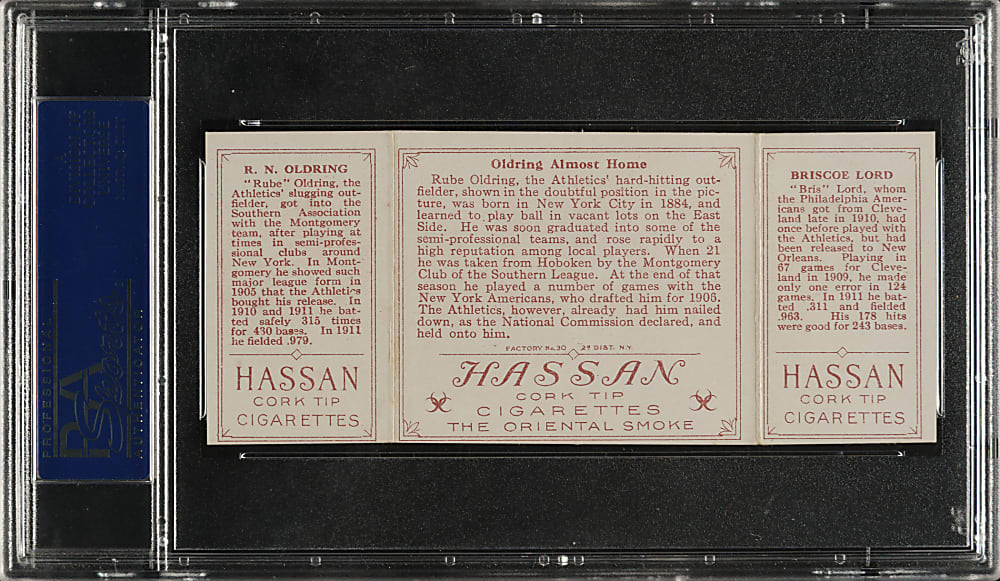 R. N. OLDRING
"Rube" Oldring, the
Athletics' slugging out-
fielder, got into the
Southern Association
with the Montgomery
team, after playing at
times in semi-profes-
sional clubs around
New York. In Mont-
gomery he showed such
major league form in
1905 that the Athletics
bought his release. In
1910 and 1911 he bat-
ted safely 315 times
for 430 bases. In 1911
he fielded .979.
HASSAN
CORK TIP
CIGARETTES
Oldring Almost Home
Rube Oldring, the Athletics' hard-hitting out-
fielder, shown in the doubtful position in the pic-
ture, was born in New York City in 1884, and
learned to play ball in vacant lots on the East
Side. He was soon graduated into some of the
semi-professional teams, and rose rapidly to a
high reputation among local players. When 21
he was taken from Hoboken by the Montgomery
Club of the Southern League. At the end of that
season he played a number of games with the
New York Americans, who drafted him for 1906.
The Athletics, however, already had him nailed
down, as the National Commission declared, and
held onto him.
FACTORY No. 30 2ᴰ DIST. N.Y.
HASSAN
CORK TIP
CIGARETTES
THE ORIENTAL SMOKE
BRISCOE LORD
"Bris" Lord, whom
the Philadelphia Amer-
icans got from Cleve-
land late in 1910, had
once before played with
the Athletics, but had
been released to New
Orleans. Playing in
67 games for Cleve-
land in 1909, he made
only one error in 124
games. In 1911 he bat-
ted .311 and fielded
.963. His 178 hits
were good for 243 bases.
HASSAN
CORK TIP
CIGARETTES
PROFESSIONAL
PSA
Sports
AUTHENTICATION